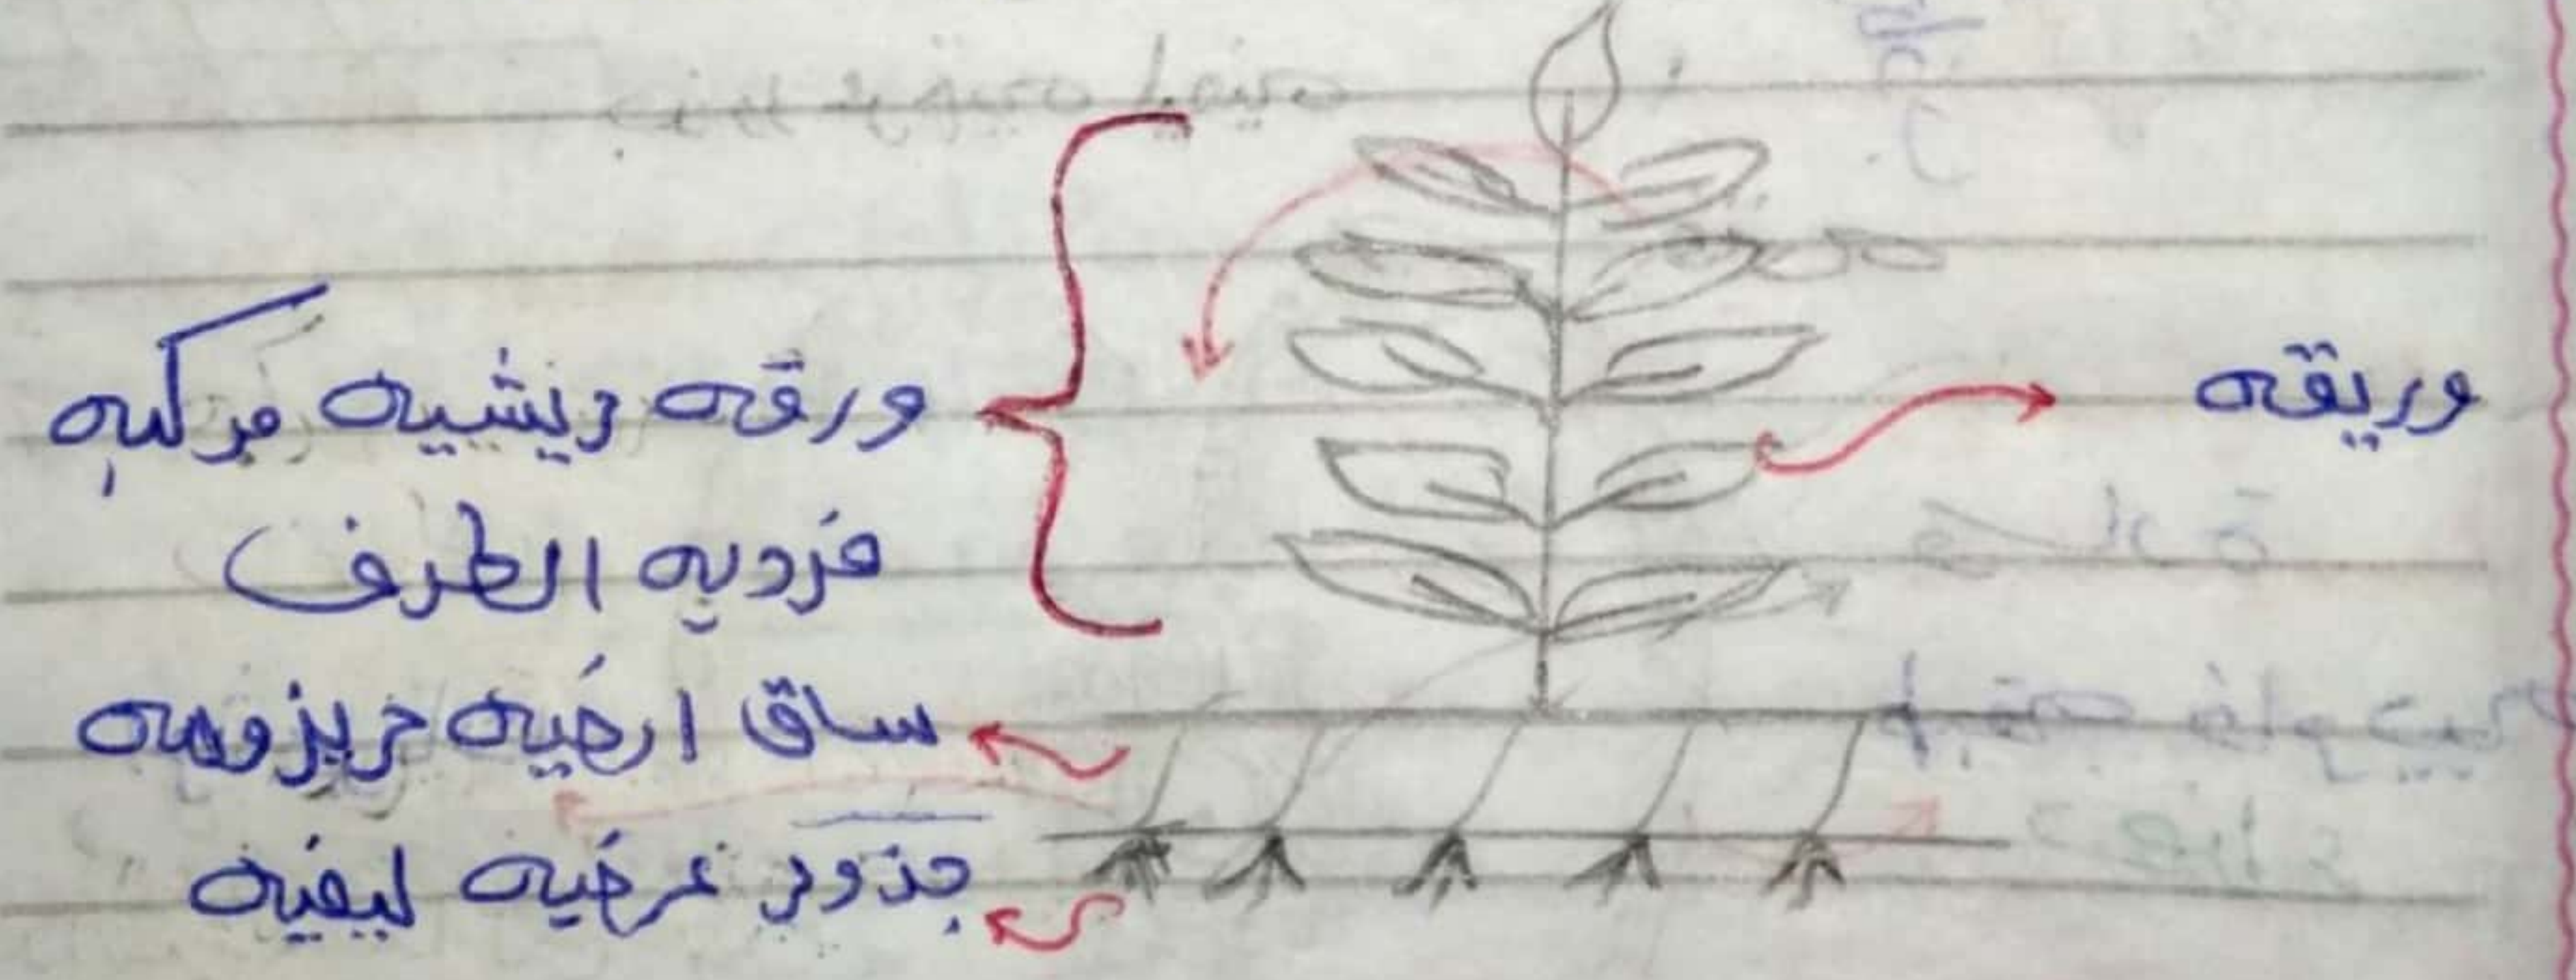 وريقه
ورقه ريشيه مركبه
فرديه الطرف
ساق ارضيه ريزوميه
جذور عرضيه ليفيه